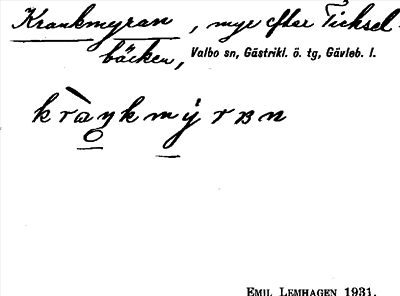 Krankmyran, myr efter Ticksel-
bäcken, Valbo sn, Gästrikl. ö. tg, Gävleb. l.
EMIL LEMHAGEN 1931.